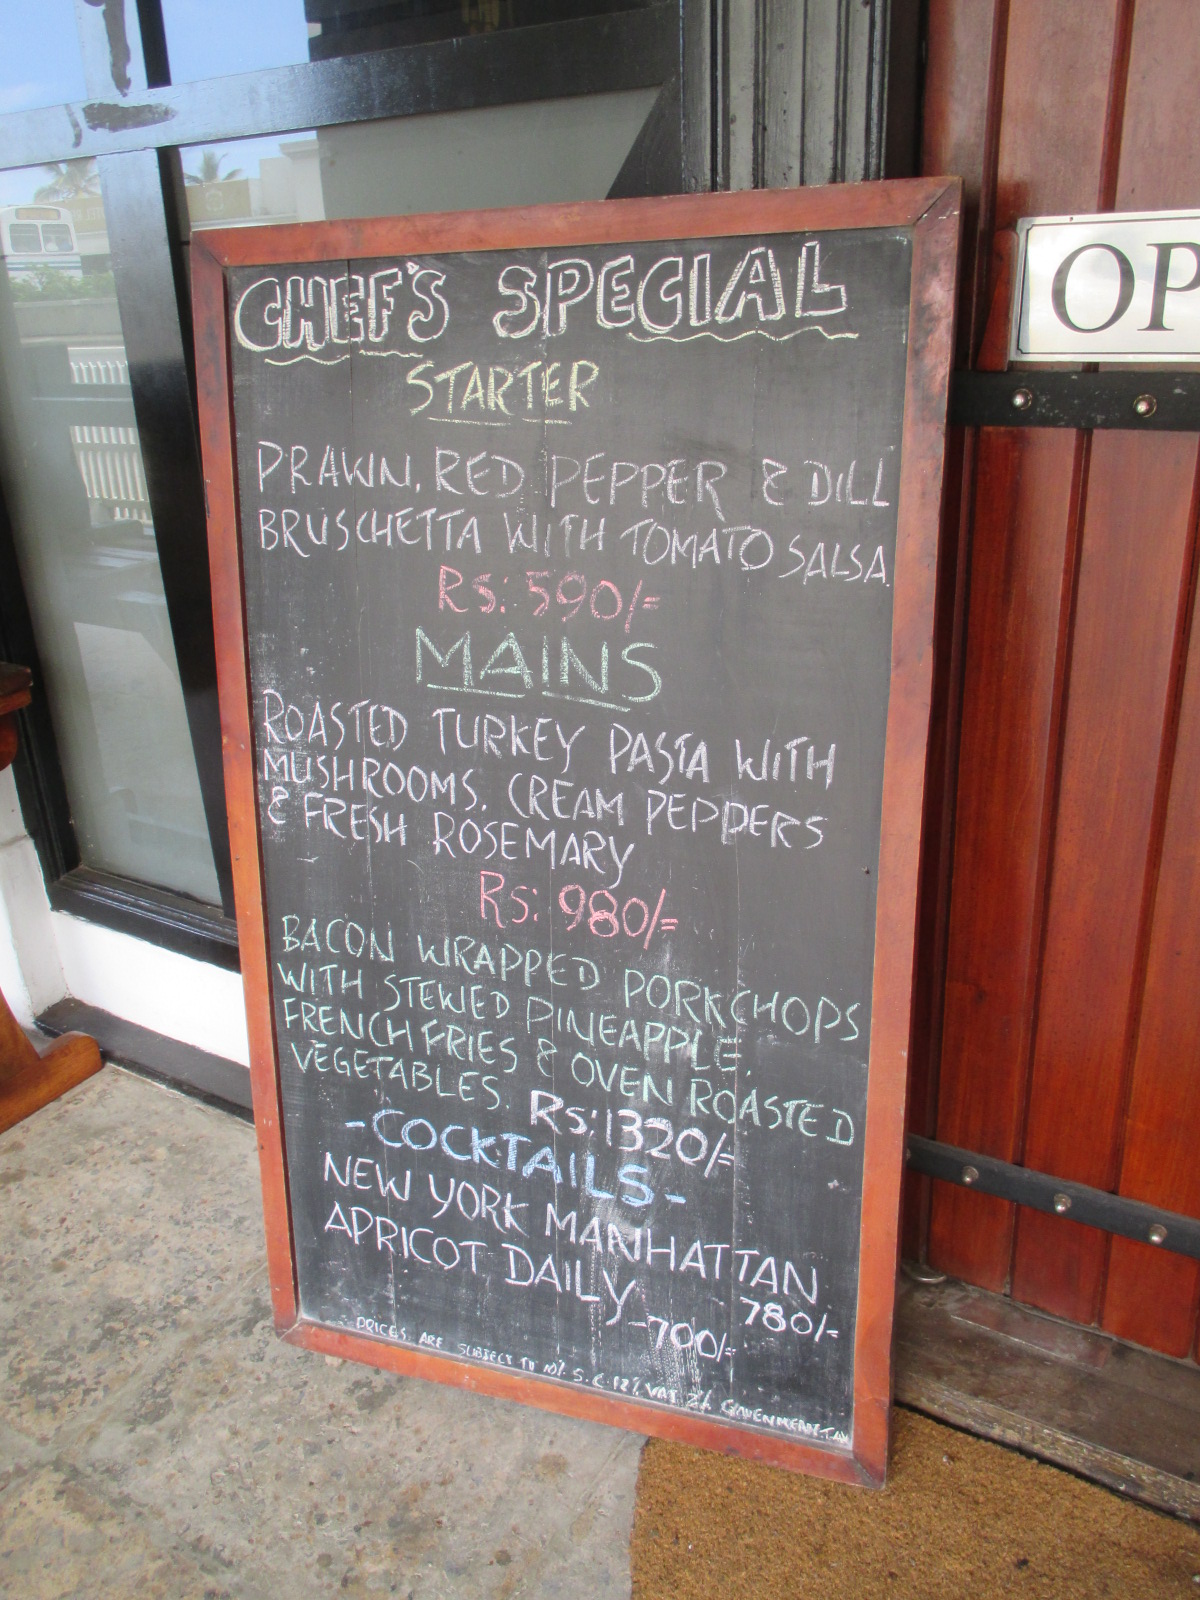 CHEF'S SPECIAL
STARTER
PRAWN, RED PEPPER & DILL
BRUSCHETTA WITH TOMATO SALSA
Rs: 590/=
MAINS
ROASTED TURKEY PASTA WITH
MUSHROOMS, CREAM PEPPERS
& FRESH ROSEMARY
Rs: 980/=
BACON WRAPPED PORKCHOPS
WITH STEWED PINEAPPLE,
FRENCH FRIES & OVEN ROASTED
VEGETABLES. Rs: 1320/=
-COCKTAILS-
NEW YORK MANHATTAN
780/=
APRICOT DAILY
-700/=
PRICES ARE SUBJECT TO 10% S.C 12% VAT 2% GAVENMENT TAX
OP